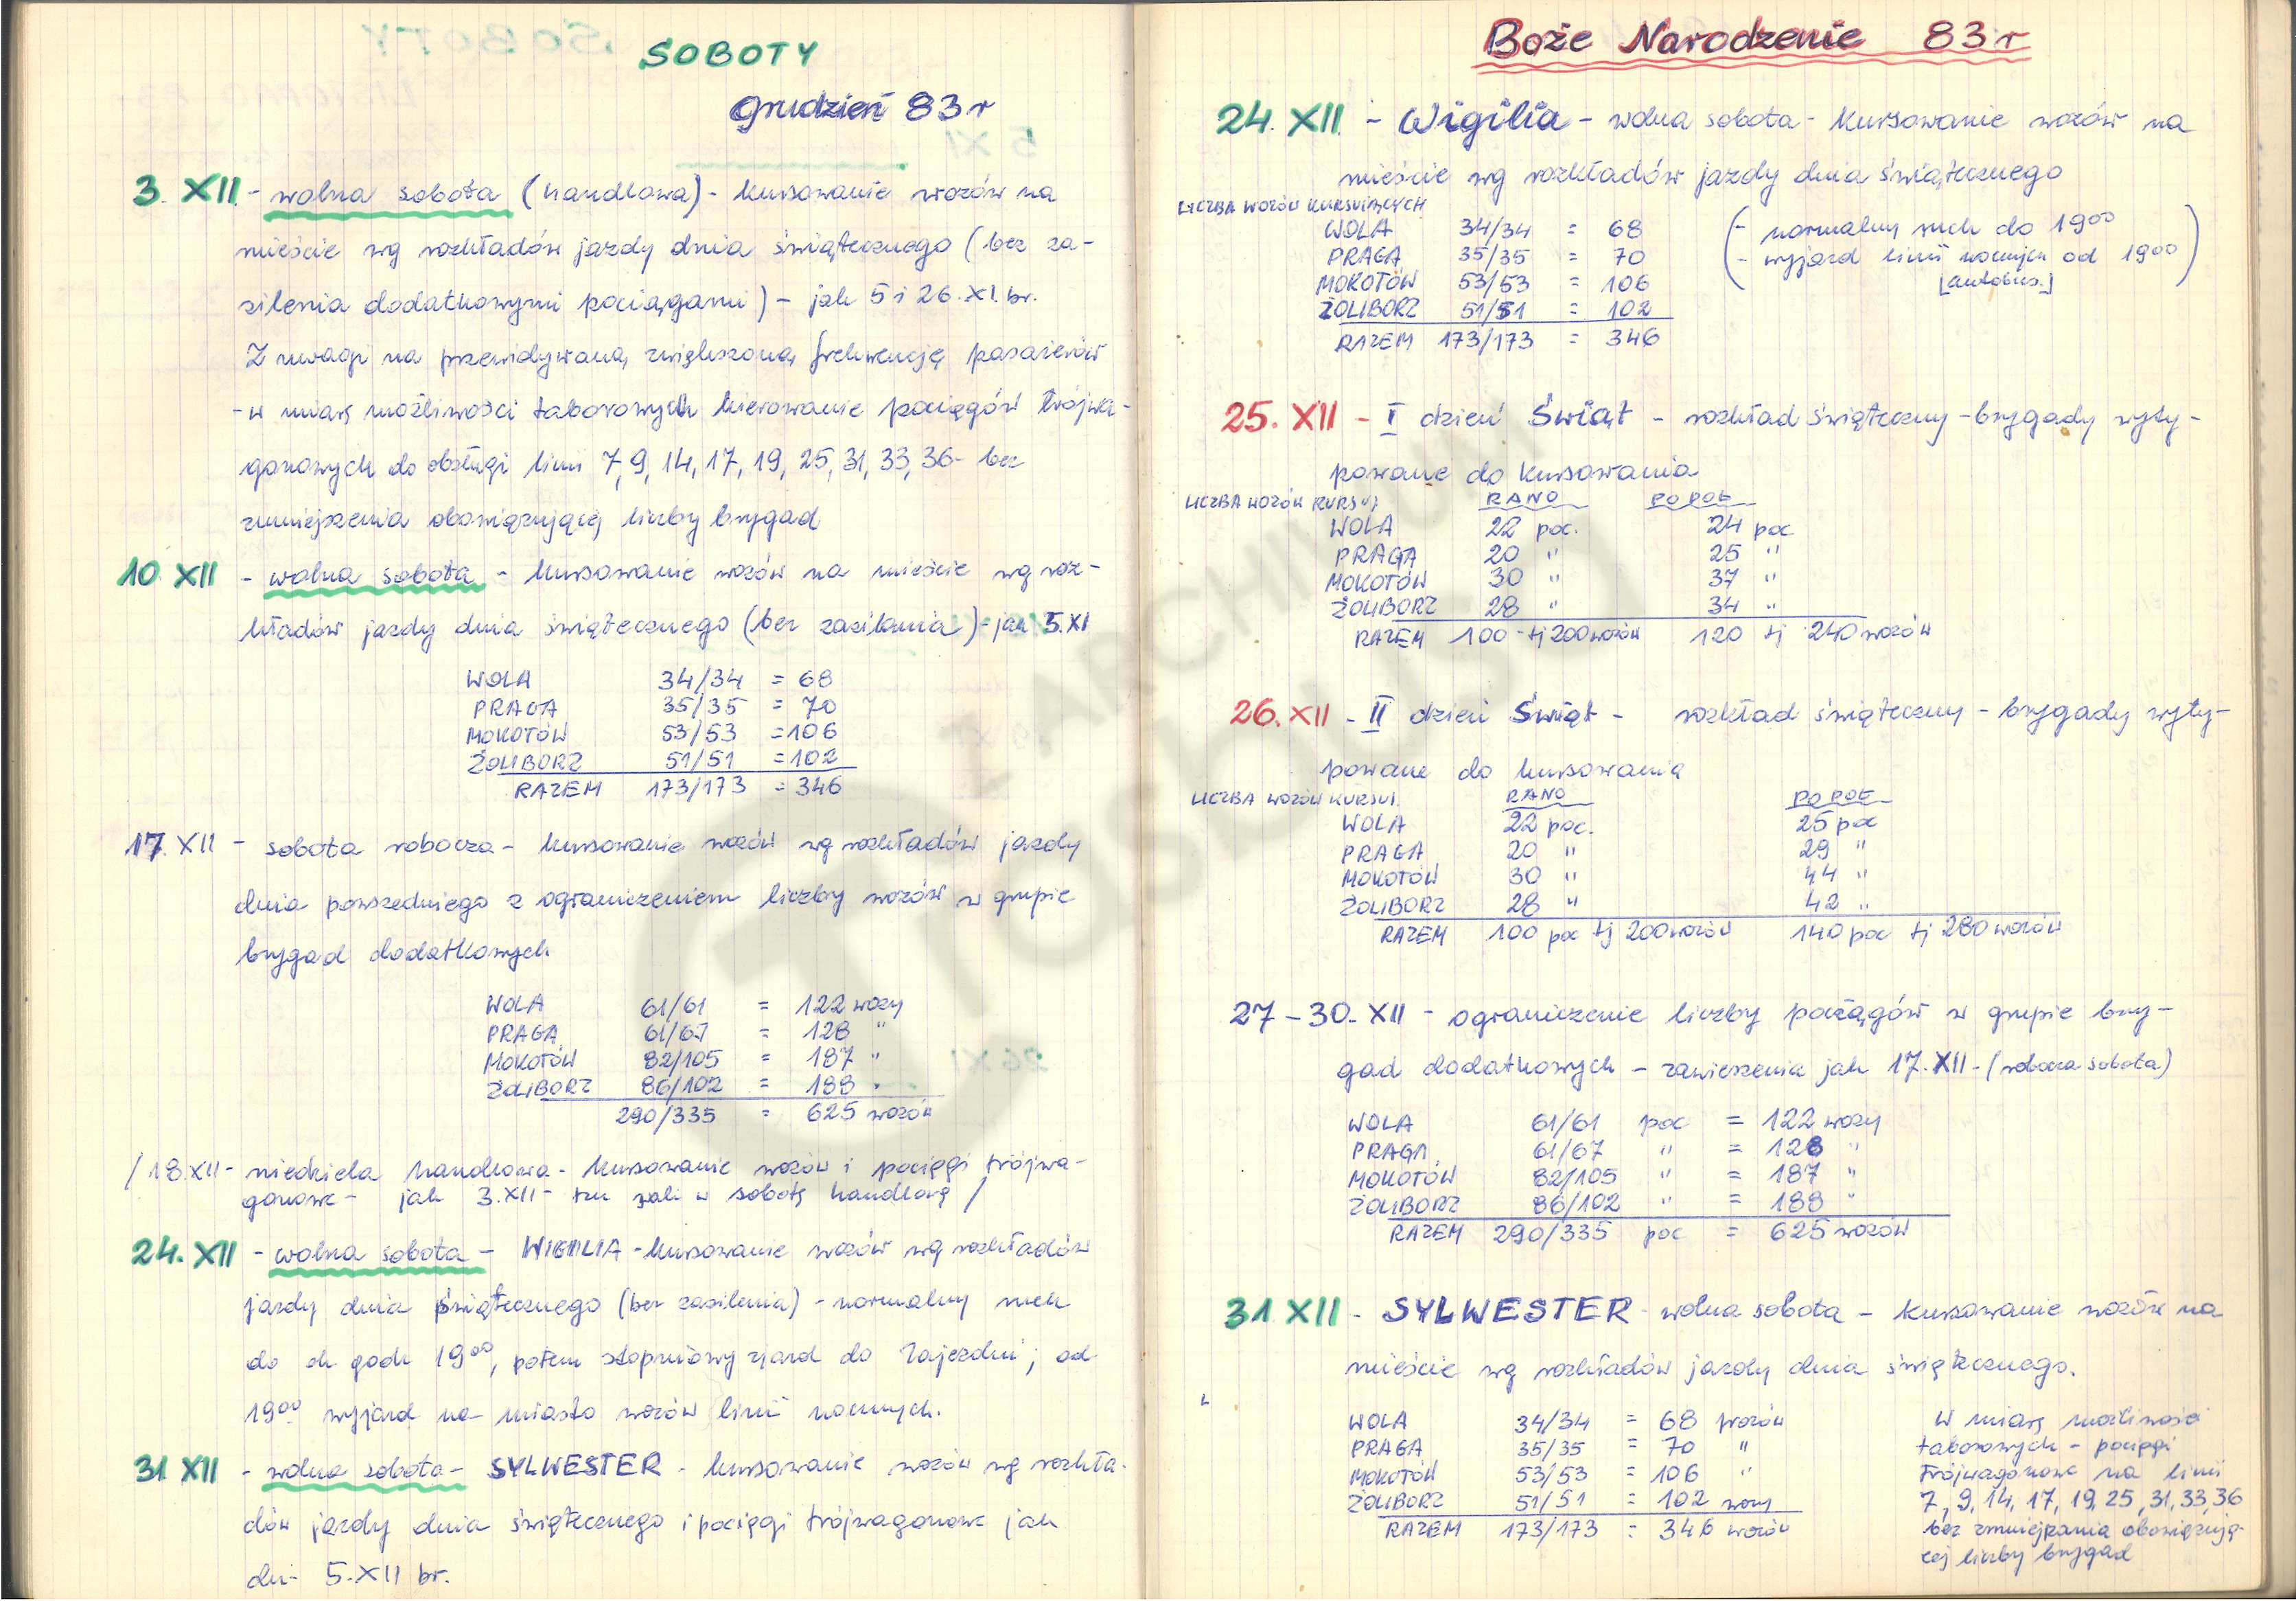 SOBOTY
grudzień 83 r
3. XII - wolna sobota (handlowa) - kursowanie wozów na
mieście wg rozkładów jazdy dnia świątecznego (bez za-
silenia dodatkowymi pociągami) - jak 5 i 26. XI. br.
Z uwagi na przewidywaną zwiększoną frekwencję pasażerów
- w miarę możliwości taborowych kierowanie pociągów trójwa-
gonowych do obsługi linii 7, 9, 14, 17, 19, 25, 31, 33, 36 - bez
zmniejszenia obowiązującej liczby brygad
10. XII - wolna sobota - kursowanie wozów na mieście wg roz-
kładów jazdy dnia świątecznego (bez zasilania) - jak 5. XI
WOLA 34/34 = 68
PRAGA 35/35 = 70
MOKOTÓW 53/53 = 106
ŻOLIBORZ 51/51 = 102
RAZEM 173/173 = 346
17. XII - sobota robocza - kursowanie wozów wg rozkładów jazdy
dnia powszedniego z ograniczeniem liczby wozów w grupie
brygad dodatkowych
WOLA 61/61 = 122 wozy
PRAGA 61/67 = 128 "
MOKOTÓW 82/105 = 187 "
ŻOLIBORZ 86/102 = 188 "
290/335 = 625 wozów
/ 18. XII - niedziela handlowa - kursowanie wozów i pociągi trójwa-
gonowe - jak 3. XII - tzn jak w sobotę handlową /
24. XII - wolna sobota - WIGILIA - kursowanie wozów wg rozkładów
jazdy dnia świątecznego (bez zasilenia) - normalny ruch
do ok godz 19⁰⁰, potem stopniowy zjazd do zajezdni; od
19⁰⁰ wyjazd na miasto wozów linii nocnych.
31 XII - wolna sobota - SYLWESTER - kursowanie wozów wg rozkła-
dów jazdy dnia świątecznego i pociągi trójwagonowe jak
dn. 5. XII br.
Boże Narodzenie 83 r
24. XII - Wigilia - wolna sobota - kursowanie wozów na
mieście wg rozkładów jazdy dnia świątecznego
LICZBA WOZÓW KURSUJĄCYCH
WOLA 34/34 = 68
PRAGA 35/35 = 70
MOKOTÓW 53/53 = 106
ŻOLIBORZ 51/51 = 102
RAZEM 173/173 = 346
(- normalny ruch do 19⁰⁰
- wyjazd linii nocnych od 19⁰⁰)
[autobus.]
25. XII - I dzień Świąt - rozkład świąteczny - brygady wyty-
powane do kursowania
LICZBA WOZÓW KURSUJ. RANO POPOŁ
WOLA 22 poc. 24 poc
PRAGA 20 " 25 "
MOKOTÓW 30 " 37 "
ŻOLIBORZ 28 " 34 "
RAZEM 100 - tj 200 wozów 120 tj 240 wozów
26. XII - II dzień Świąt - rozkład świąteczny - brygady wyty-
powane do kursowania
LICZBA WOZÓW KURSUJ. RANO POPOŁ
WOLA 22 poc. 25 poc
PRAGA 20 " 29 "
MOKOTÓW 30 " 44 "
ŻOLIBORZ 28 " 42 "
RAZEM 100 poc tj 200 wozów 140 poc tj 280 wozów
27 - 30. XII - ograniczenie liczby pociągów w grupie bry-
gad dodatkowych - zawieszenia jak 17. XII - (robocza sobota)
WOLA 61/61 poc = 122 wozy
PRAGA 61/67 " = 128 "
MOKOTÓW 82/105 " = 187 "
ŻOLIBORZ 86/102 " = 188 "
RAZEM 290/335 poc = 625 wozów
31 XII - SYLWESTER - wolna sobota - kursowanie wozów na
mieście wg rozkładów jazdy dnia świątecznego.
WOLA 34/34 = 68 wozów
PRAGA 35/35 = 70 "
MOKOTÓW 53/53 = 106 "
ŻOLIBORZ 51/51 = 102 wozy
RAZEM 173/173 = 346 wozów
W miarę możliwości
taborowych - pociągi
trójwagonowe na linii
7, 9, 14, 17, 19, 25, 31, 33, 36
bez zmniejszania obowiązują-
cej liczby brygad
Z ARCHIWUM